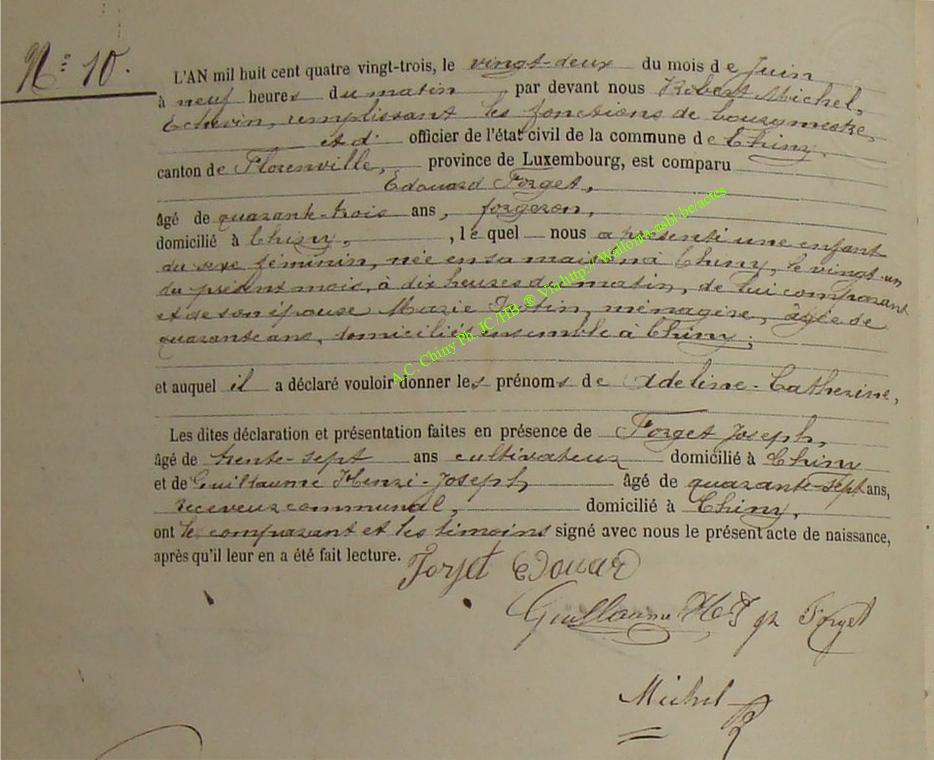 N° 10.
L'AN mil huit cent quatre vingt-trois, le vingt-deux du mois de Juin
à neuf heures du matin, par devant nous Robert Michel,
Echevin, remplissant les fonctions de bourgmestre,
et d' officier de l'état civil de la commune de Chiny
canton de Florenville, province de Luxembourg, est comparu
Edouard Forget,
âgé de quarante-trois ans, forgeron,
domicilié à Chiny, , lequel nous a présenté une enfant
du sexe féminin, née en sa maison à Chiny, le vingt-un
du présent mois, à dix heures du matin, de lui comparant
et de son épouse Marie ménagère, âgée de
quarante ans, domiciliés ensemble à Chiny;
et auquel il a déclaré vouloir donner les prénoms de Adeline-Catherine,
Les dites déclaration et présentation faites en présence de Forget Joseph,
âgé de trente-sept ans cultivateur domicilié à Chiny
et de Guillaume Henri-Joseph âgé de quarante-sept ans,
receveur communal, domicilié à Chiny,
ont le comparant et les témoins signé avec nous le présent acte de naissance,
après qu'il leur en a été fait lecture.
Forjet Edouard
Guillaume HJ Forget
Michel R
A.C. Chiny Ph. JC /HB. ® Via http:// Wallonia-asbl.be/actes